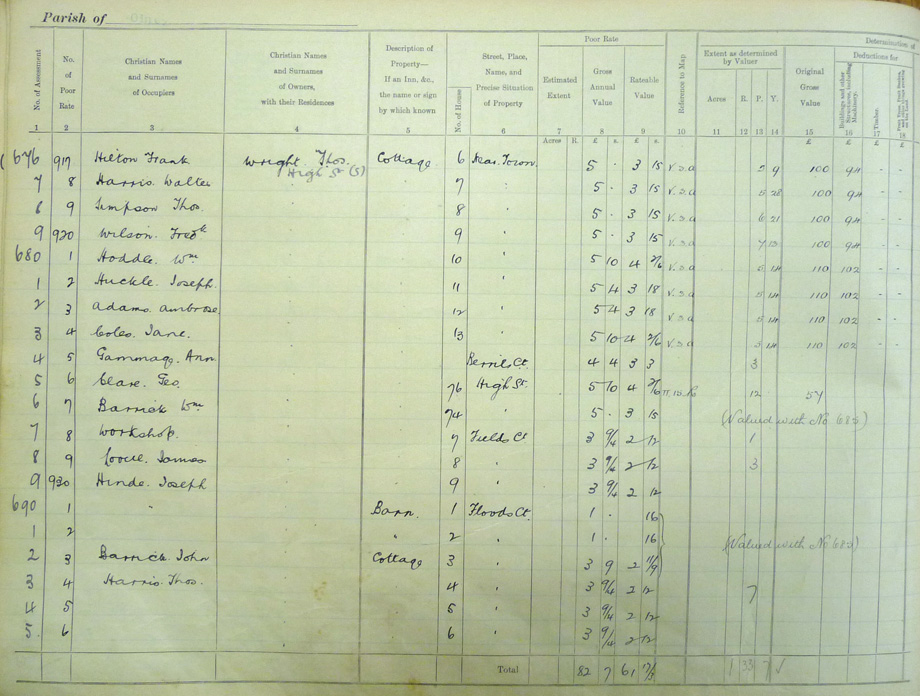 Parish of
Poor Rate
Determination of
No. of Assessment
No. of Poor Rate
Christian Names and Surnames of Occupiers
Christian Names and Surnames of Owners, with their Residences
Description of Property— If an Inn, &c., the name or sign by which known
No. of House
Street, Place, Name, and Precise Situation of Property
Estimated Extent
Gross Annual Value
Rateable Value
Reference to Map
Extent as determined by Valuer
Acres R. P. Y.
Original Gross Value
Deductions for
Buildings and other Structures, including Machinery.
Timber.
1 2 3 4 5 6 7 8 9 10 11 12 13 14 15 16 17 18
Acres R. £ s. £ s. £ £ £ £
676 917 Hilton Frank Wright Thos. High St (S) Cottage 6 Near Town 5 · 3 15 V.5.a 5 9 100 94 - -
7 8 Harris Walter " 7 " 5 · 3 15 V.5.a 5 28 100 94 - -
8 9 Simpson Thos. 8 " 5 · 3 15 V.5.a 6 21 100 94 - -
9 920 Wilson. Fredk 9 " 5 · 3 15 V.5.a 100 94 - -
680 1 Hoddle. Wm 10 " 5 10 4 2/6 V.5.a 5 14 110 102 - -
1 2 Huckle. Joseph 11 " 5 4 3 18 V.5.a 5 14 110 102 - -
2 3 Adams. Ambrose 12 " 5 4 3 18 V.5.a 5 14 110 102 - -
3 4 Coles. Jane. 13 " 5 10 4 2/6 V.5.a 5 14 110 102 - -
4 5 Gammag. Ann Berrils Ct. 4 4 3 3 3
5 6 Clare. Geo. 76 High St. 5 10 4 2/6 12 54
6 7 Barrick Wm 74 " 5 · 3 15 (Valued with No 685)
7 8 Workshop. 7 Fields Ct 3 9/4 2 12 1
8 9 James 8 " 3 9/4 2 12 3
9 930 Hinde. Joseph 9 " 3 9/4 2 12
690 1 " Barn. 1 Floods Ct. 1 · 16
1 2 " 2 " 1 · 16 (Valued with No 685)
2 3 Barrick John Cottage 3 " 3 9 2 11/9
3 4 Harris Thos. 4 " 3 9/4 2 12 7
4 5 5 " 3 9/4 2 12
5 6 6 " 3 9/4 2 12
Total 82 7 61 1 33 7